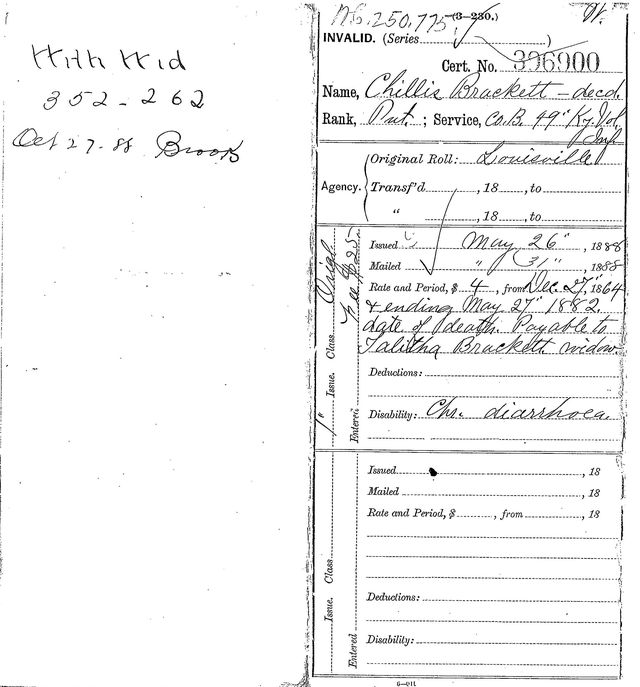 With Wid
352-262
Oct 27-88 Brook
No. 250,775 (3-230.) W.
INVALID. (Series )
Cert. No. 396900
Name, Chillis Brackett - decd.
Rank, Pvt.; Service, Co. B. 49" Ky. Vol. Inf
Agency. Original Roll: Louisville
Transf'd , 18 , to
" , 18 , to
1" Issue. Class. Orig
Entered Fee $25.
Issued May 26", 1888
Mailed " 31", 1888
Rate and Period, $ 4, from Dec. 27", 1864
& ending May 27" 1882.
date of death. Payable to
Talitha Brackett widow.
Deductions:
Disability: Chr. diarrhoea.
Issue. Class
Entered
Issued , 18
Mailed , 18
Rate and Period, $ , from , 18
Deductions:
Disability: